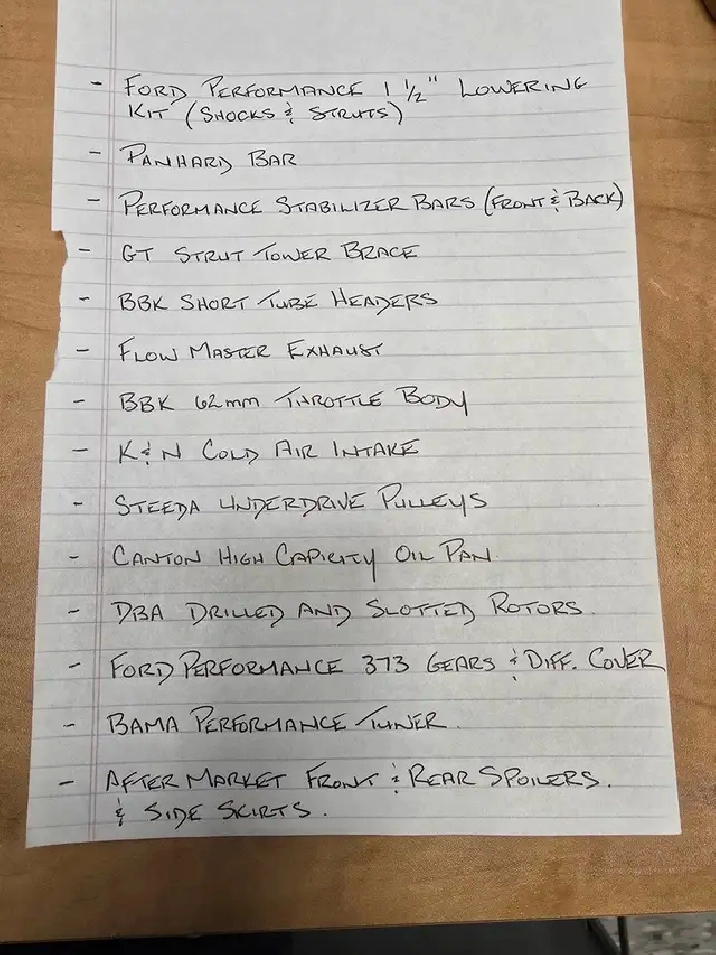 - FORD PERFORMANCE 1 1/2" LOWERING
KIT (SHOCKS & STRUTS)
- PANHARD BAR
- PERFORMANCE STABILIZER BARS (FRONT & BACK)
- GT STRUT TOWER BRACE
- BBK SHORT TUBE HEADERS
- FLOW MASTER EXHAUST
- BBK 62mm THROTTLE BODY
- K&N COLD AIR INTAKE
- STEEDA UNDERDRIVE PULLEYS
- CANTON HIGH CAPICITY OIL PAN
- DBA DRILLED AND SLOTTED ROTORS.
- FORD PERFORMANCE 373 GEARS & DIFF. COVER
- BAMA PERFORMANCE TUNER.
- AFTER MARKET FRONT & REAR SPOILERS.
& SIDE SKIRTS.